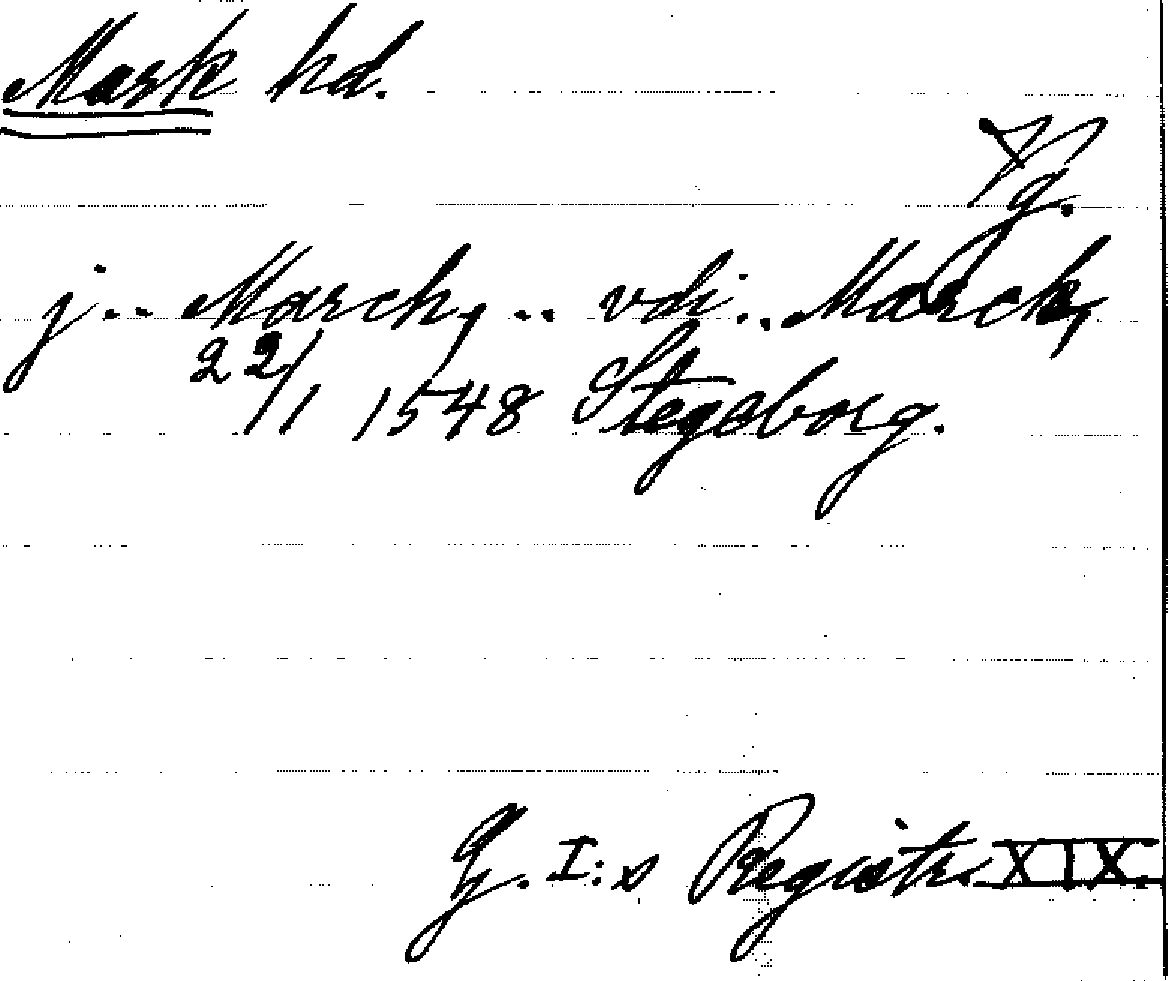 Mark hd.
Vg.
j.. March, .. vdi.. Marck,
22/1 1548 Stegeborg.
G. I:s Registr. XIX.